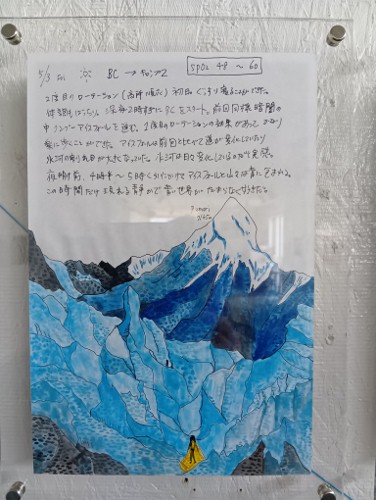 5/3 Sat ☀ BC → キャンプ2 SpO2 49 ~ 60
2度目のローテーション(高所順応)初日。ぐっすり寝ることができた。
体調もばっちり。深夜2時すぎにBCをスタート。前回同様暗闇の
中アイスフォールを進む。2度目のローテーションの効果があってかなり
楽に歩くことができた。アイスフォールは前回とくらべて道が変化していたり
氷河の裂け目が大きくなっていた。氷河は日々変化しているのだと実感。
夜明け前、4時半〜5時くらいにかけてアイスフォールと山々は青に包まれる。
この時間だけ見れる静かで青い世界がたまらなく好きだ。
Pumori